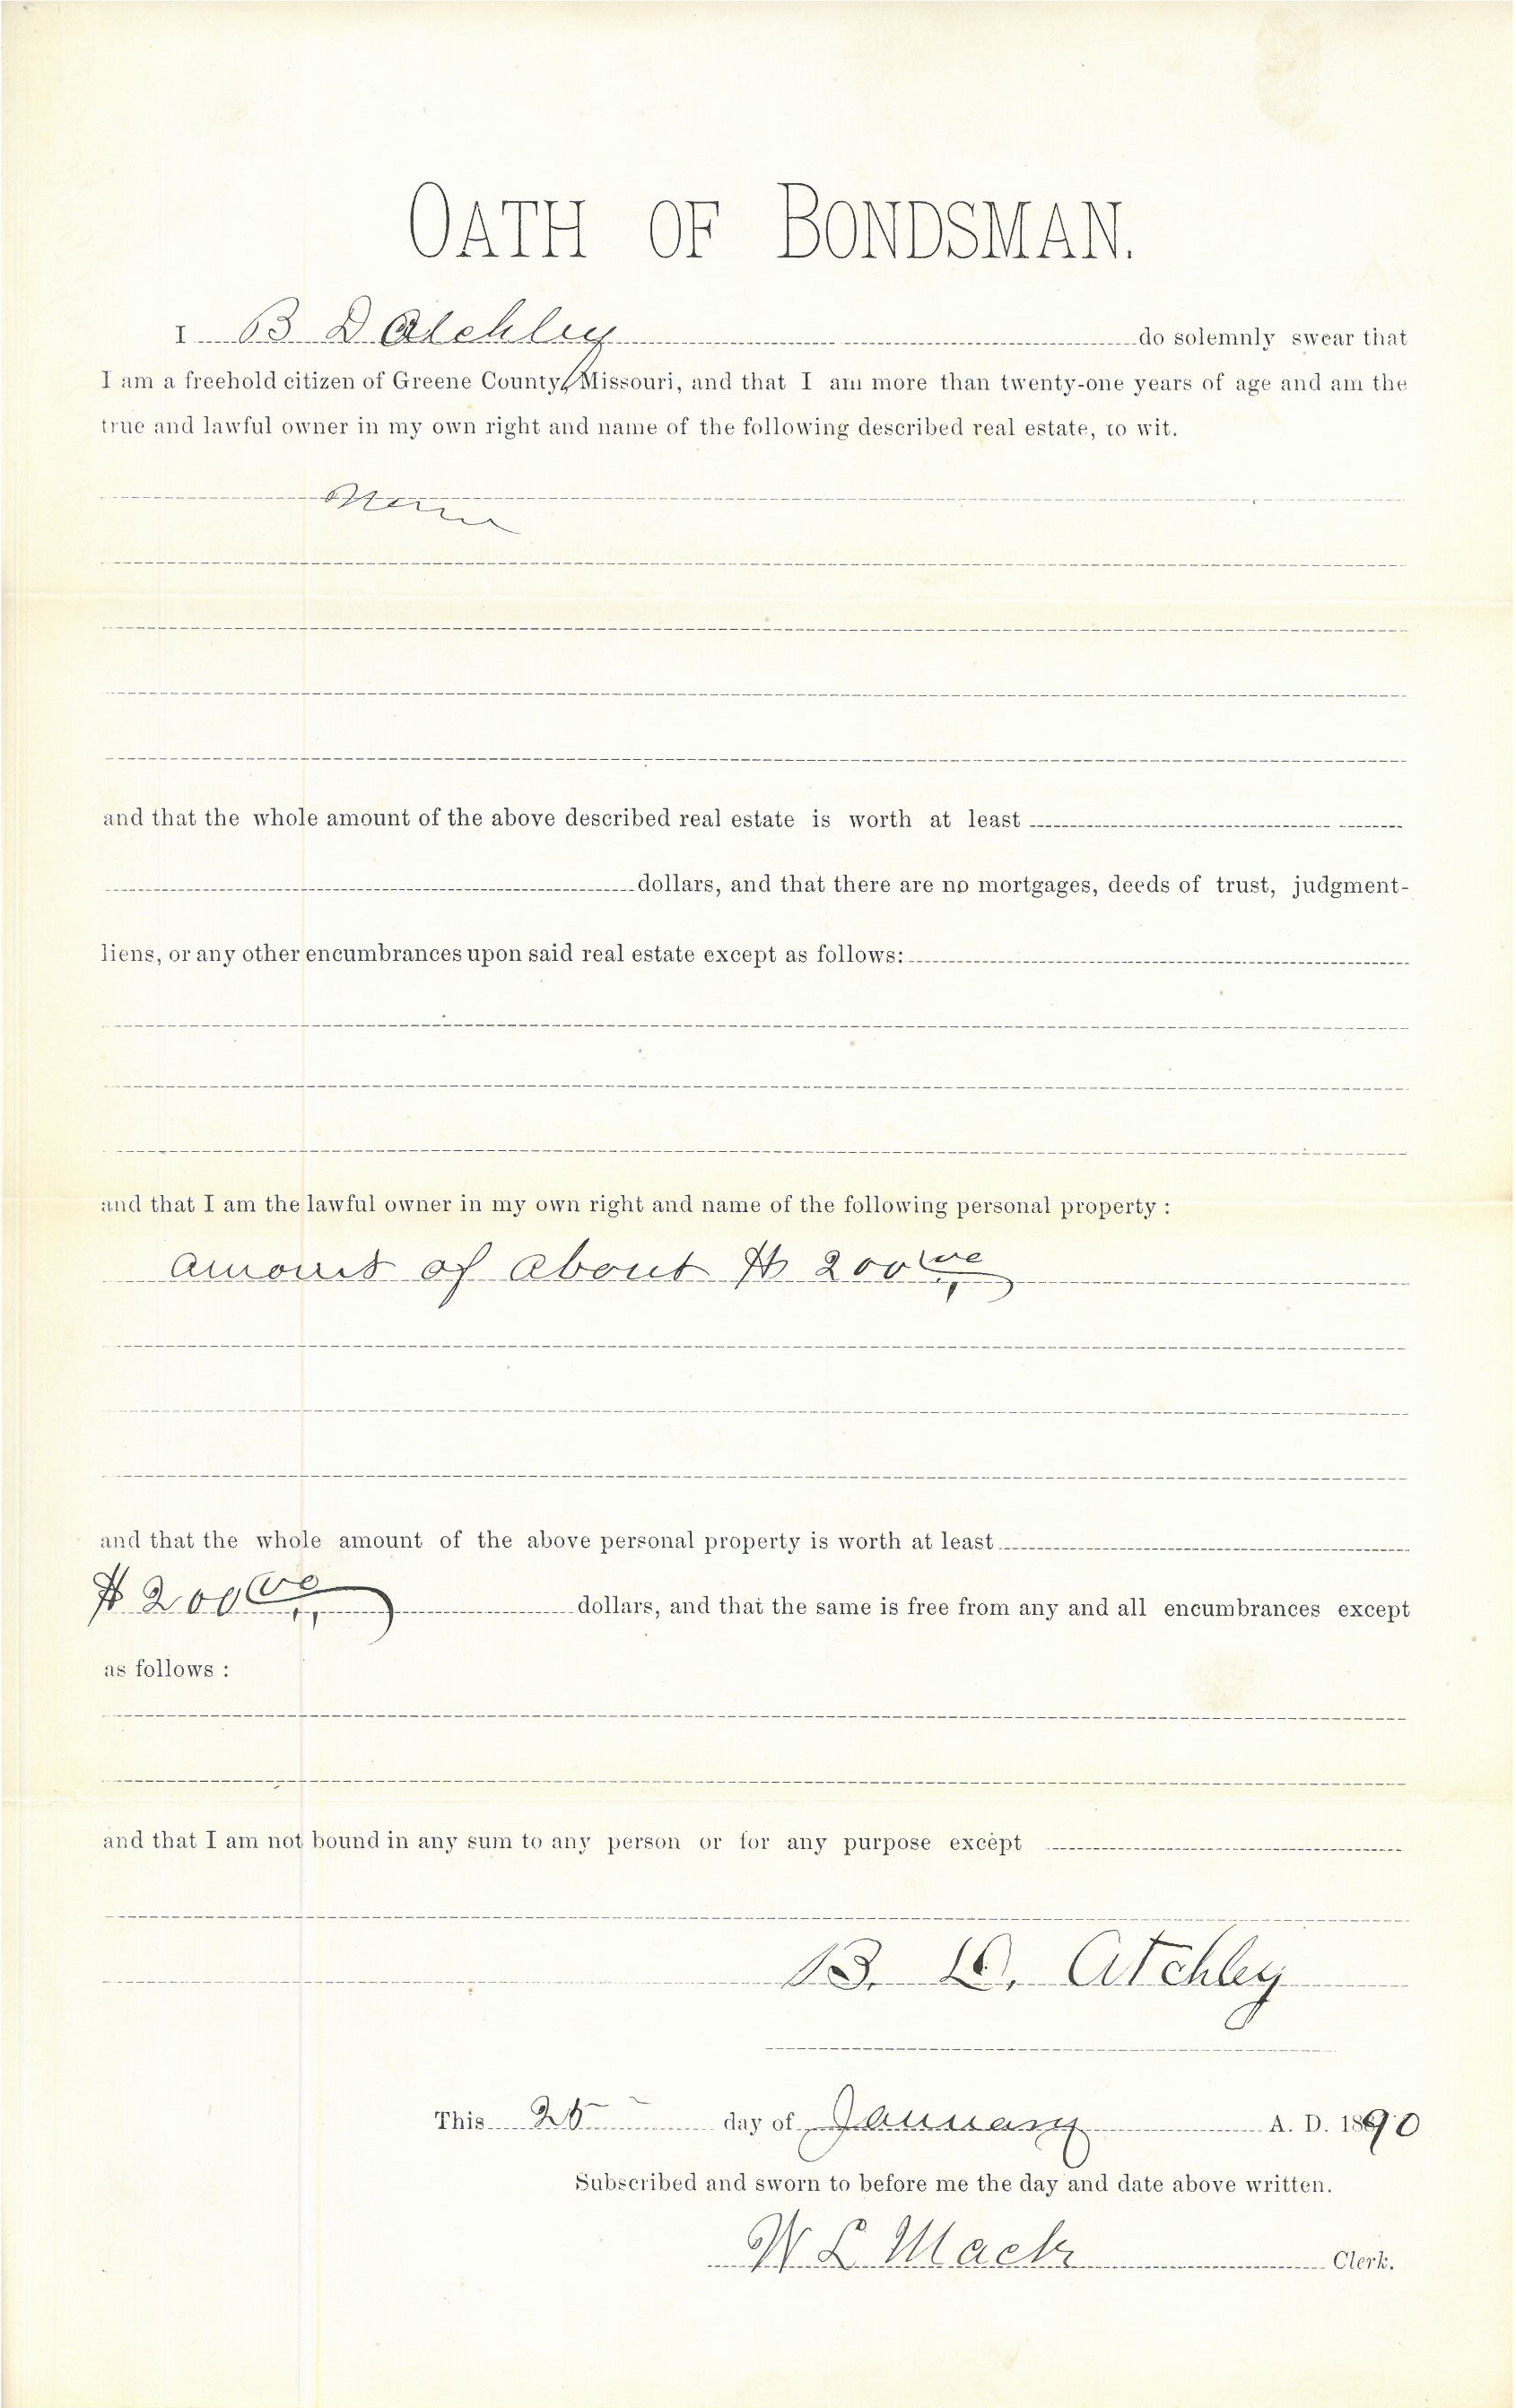 OATH OF BONDSMAN.
I B D Atchley do solemnly swear that
I am a freehold citizen of Greene County, Missouri, and that I am more than twenty-one years of age and am the
true and lawful owner in my own right and name of the following described real estate, to wit.
and that the whole amount of the above described real estate is worth at least
dollars, and that there are no mortgages, deeds of trust, judgment-
liens, or any other encumbrances upon said real estate except as follows:
and that I am the lawful owner in my own right and name of the following personal property :
amount of about $ 200
and that the whole amount of the above personal property is worth at least
$ 200 dollars, and that the same is free from any and all encumbrances except
as follows :
and that I am not bound in any sum to any person or for any purpose except
B. D. Atchley
This 25 day of January A. D. 1890
Subscribed and sworn to before me the day and date above written.
W L Mack Clerk.